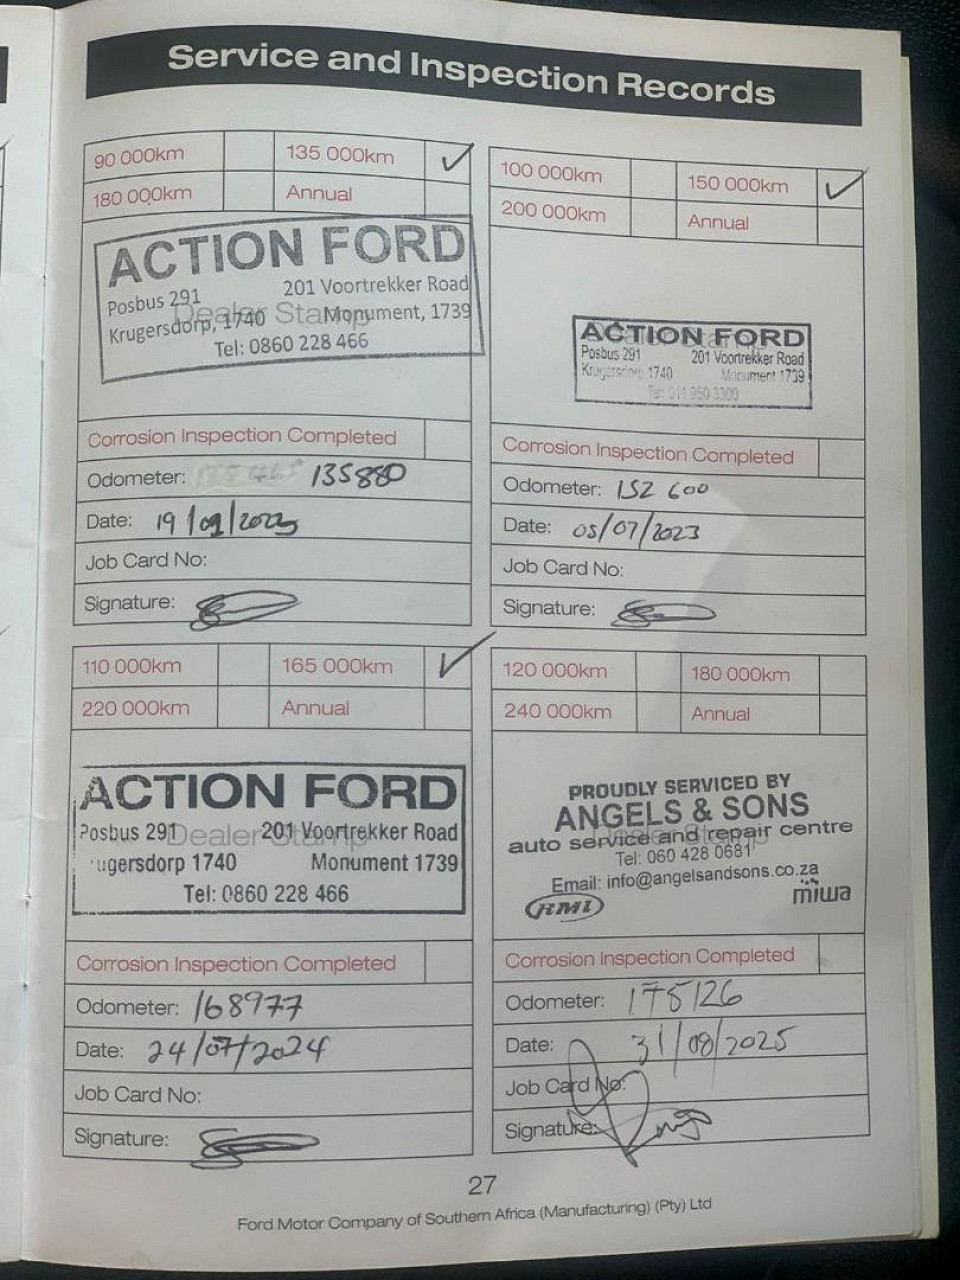 Service and Inspection Records
90 000km
135 000km ✓
180 000km
Annual
ACTION FORD
Posbus 291 201 Voortrekker Road
Krugersdorp, 1740 Monument, 1739
Tel: 0860 228 466
Dealer Stamp
Corrosion Inspection Completed
Odometer: 135880
Date:
Job Card No:
Signature:
100 000km
150 000km ✓
200 000km
Annual
ACTION FORD
Posbus 291 201 Voortrekker Road
Krugersdorp 1740 Monument 1739
Tel: 011 950 3300
Corrosion Inspection Completed
Odometer: 152 600
Date: 05/07/2023
Job Card No:
Signature:
110 000km
165 000km ✓
220 000km
Annual
ACTION FORD
Posbus 291 201 Voortrekker Road
ugersdorp 1740 Monument 1739
Tel: 0860 228 466
Dealer Stamp
Corrosion Inspection Completed
Odometer: 168977
Date: 24/07/2024
Job Card No:
Signature:
120 000km
180 000km
240 000km
Annual
PROUDLY SERVICED BY
ANGELS & SONS
auto service and repair centre
Tel: 060 428 0681
Email: info@angelsandsons.co.za
RMI miwa
Dealer Stamp
Corrosion Inspection Completed
Odometer: 175126
Date: 31/08/2025
Job Card No:
Signature:
27
Ford Motor Company of Southern Africa (Manufacturing) (Pty) Ltd